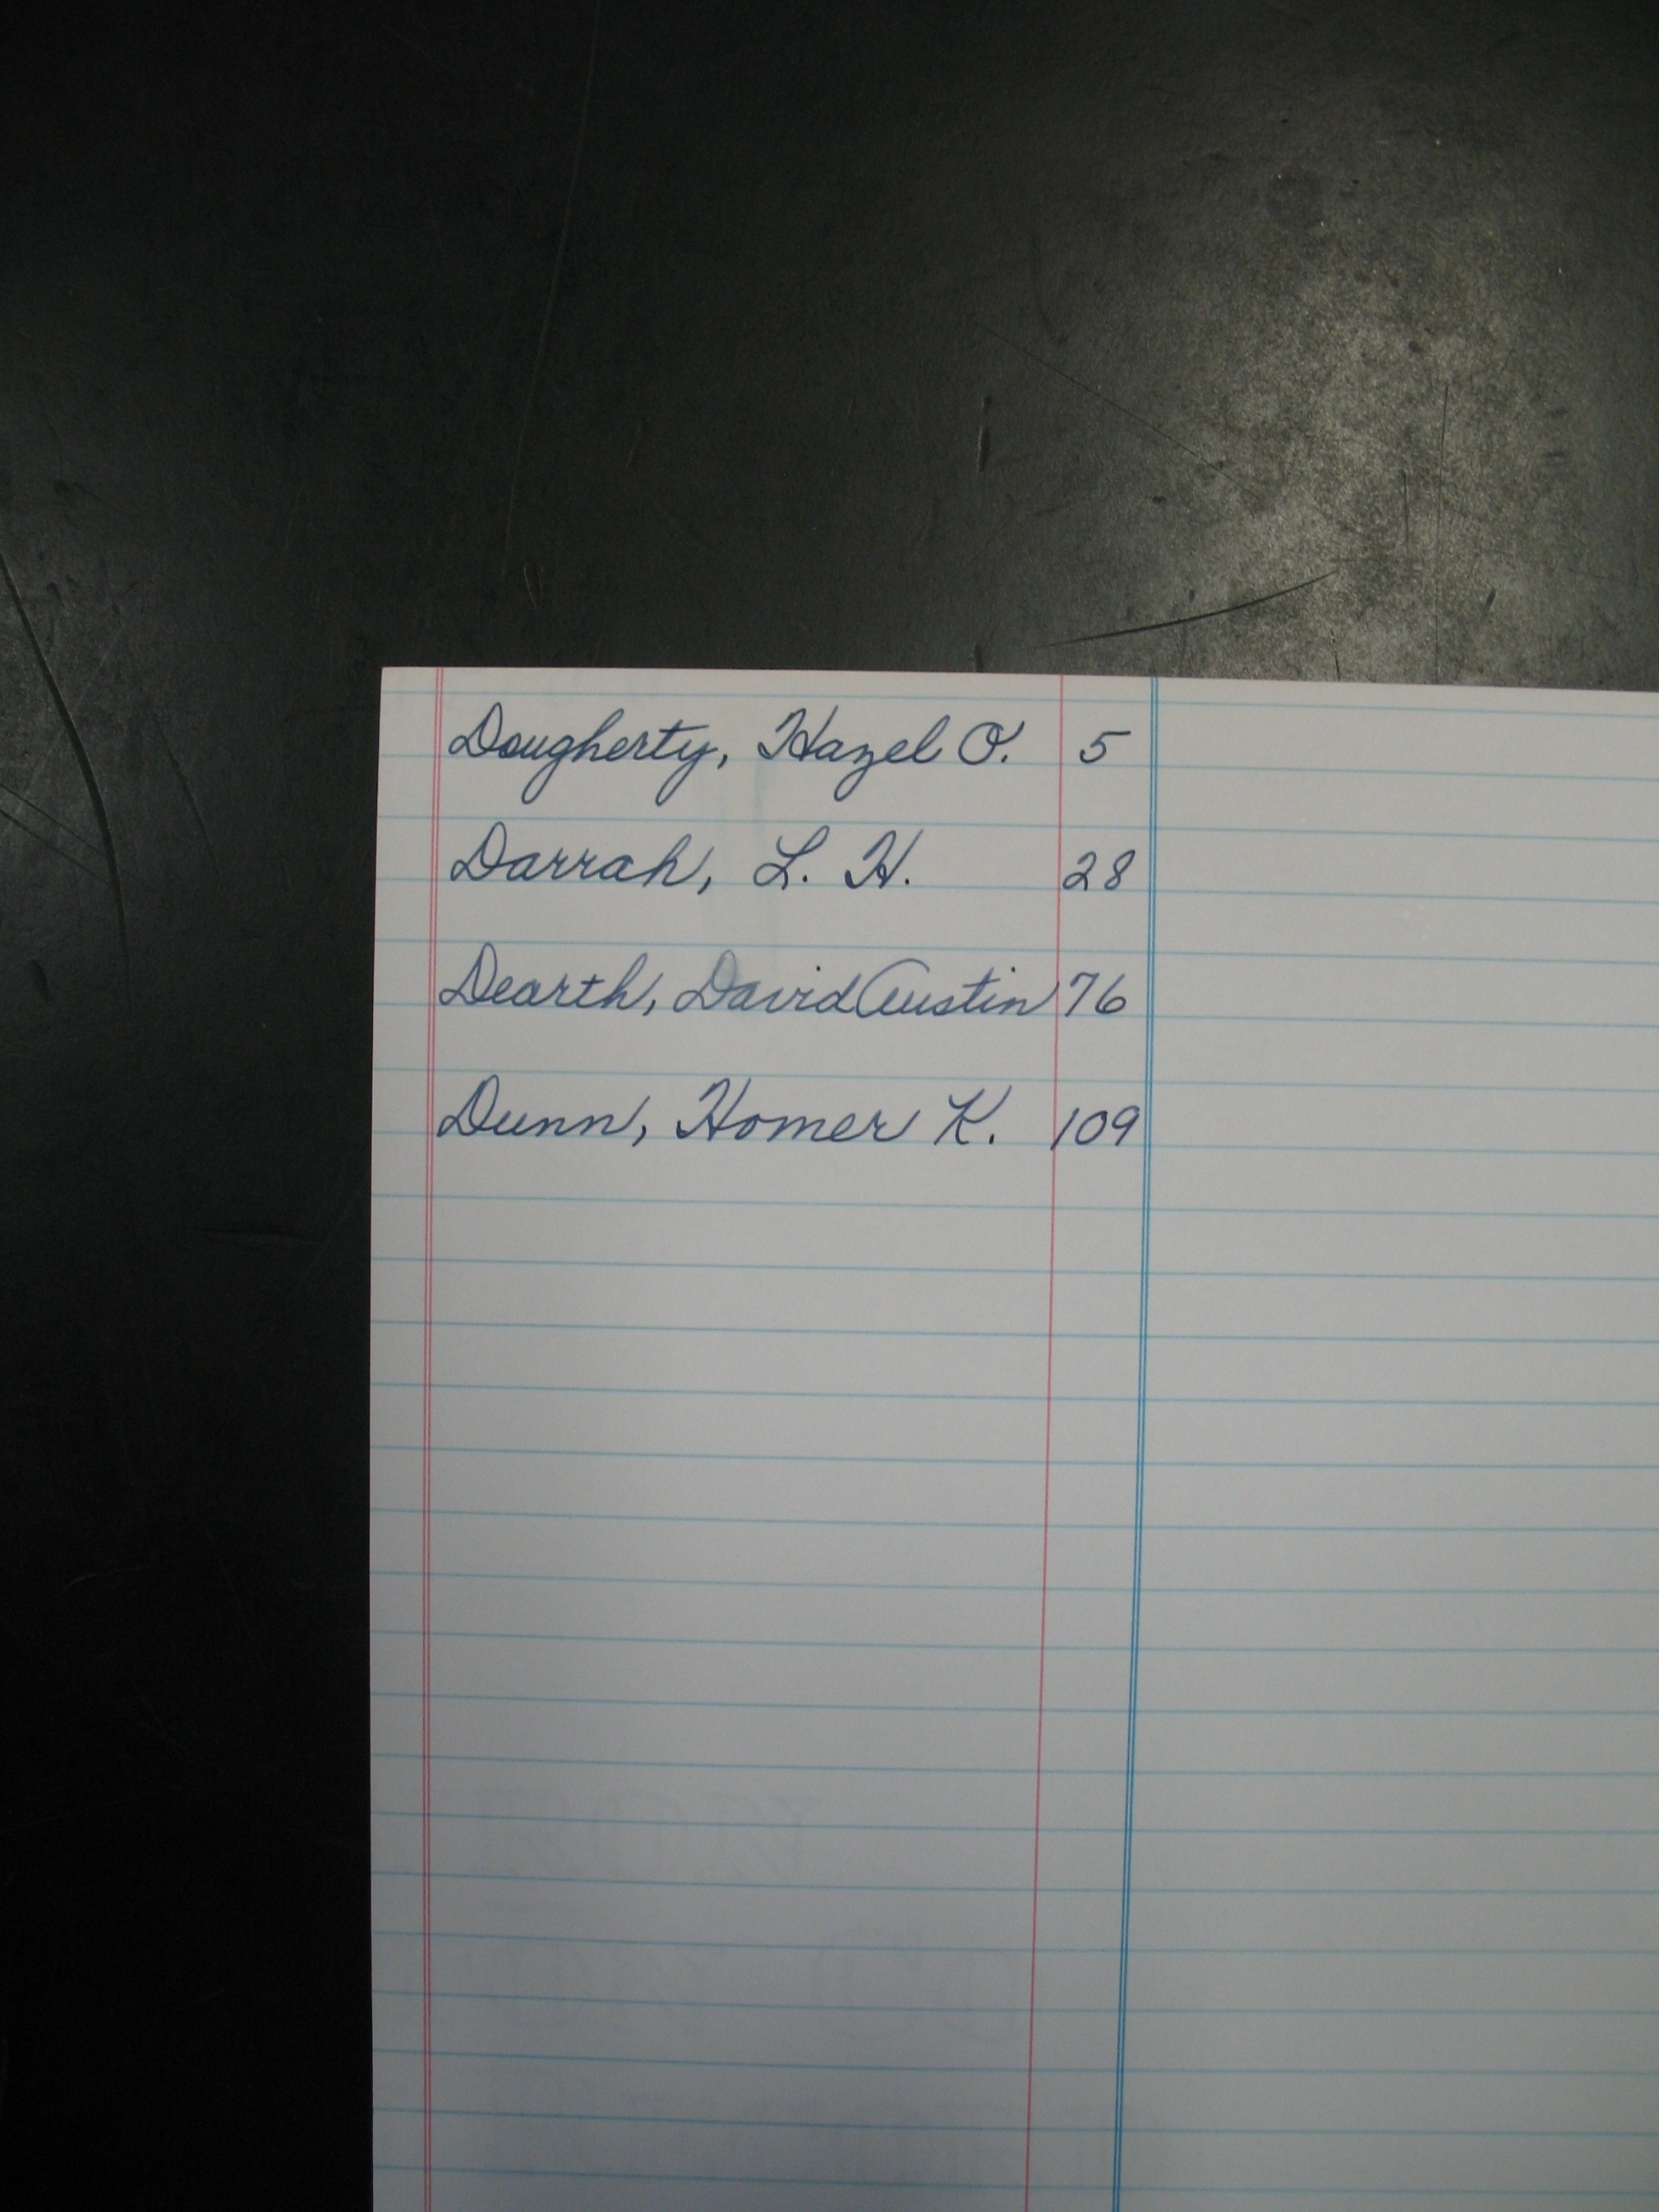 Dougherty, Hazel O. 5
Darrah, L. H. 28
Dearth, David Austin 76
Dunn, Homer K. 109